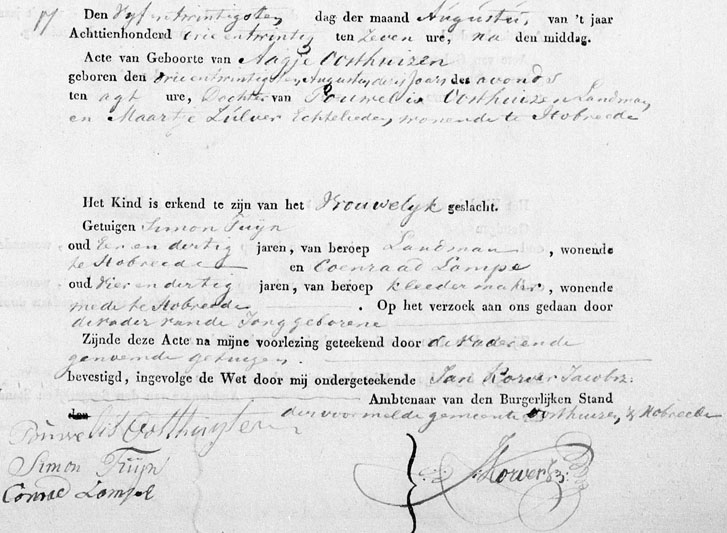 Den Vyfentwintigsten dag der maand Augustus, van 't jaar
Achttienhonderd drieentwintig ten Zeven ure, na den middag.
Acte van Geboorte van Aagje Oosthuizen
geboren den drieentwintigsten Augustus dezes Jaars des avonds
ten agt ure, Dochter van Pouwelis Oosthuizen Landman,
en Maartje Zulver Echtelieden, wonende te Hobreede
Het Kind is erkend te zijn van het Vrouwelyk geslacht.
Getuigen Simon Tuyn
oud Een en dertig jaren, van beroep Landman , wonende
te Hobreede en Coenraad Lompe
oud Vier en dertig jaren, van beroep kleedermaker, wonende
mede te Hobreede . Op het verzoek aan ons gedaan door
de vader van de Jonggeborene
Zijnde deze Acte na mijne voorlezing geteekend door de vader ende
genoemde getuigen.
bevestigd, ingevolge de Wet door mij ondergeteekende Jan Korver Jacobsz:
Ambtenaar van den Burgerlijken Stand
der voormelde gemeente Oosthuizen, & Hobreede
Pouwelis Oosthuyzen
Simon Tuyn
Conraad Lompe
J: Korver Jz: